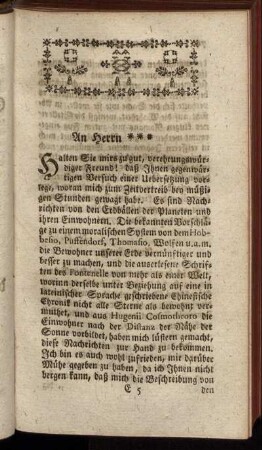 An Herrn ***
Halten Sie mirs zu gut, verehrungswür-
diger Freund! daß ich Ihnen gegenwär-
tigen Versuch einer Uebersetzung vor-
lege, woran mich zum Zeitvertreib bey müßi-
gen Stunden gewagt habe. Es sind Nach-
richten von den Erdbällen der Planeten und
ihren Einwohnern. Die bekannten Vorschlä-
ge zu einem moralischen System von dem Hob-
besio, Puffendorf, Thomasio, Wolfen u.a.m.
die Bewohner unserer Erde vernünftiger und
besser zu machen, und die auserlesene Schrif-
ten des Fontenelle von mehr als einer Welt,
worinn derselbe unter Beziehung auf eine in
lateinischer Sprache geschriebene Chinesische
Chronik nicht alle Sterne als bewohnt ver-
muthet, und aus Hugenii Cosmotheoro die
Einwohner nach der Distanz der Nähe der
Sonne vorbildet, haben mich lüstern gemacht,
diese Nachrichten zur Hand zu bekommen.
Ich bin es auch wohl zufrieden, mir darüber
Mühe gegeben zu haben, da ich Ihnen nicht
bergen kann, daß mich die Beschreibung von
E 5 den